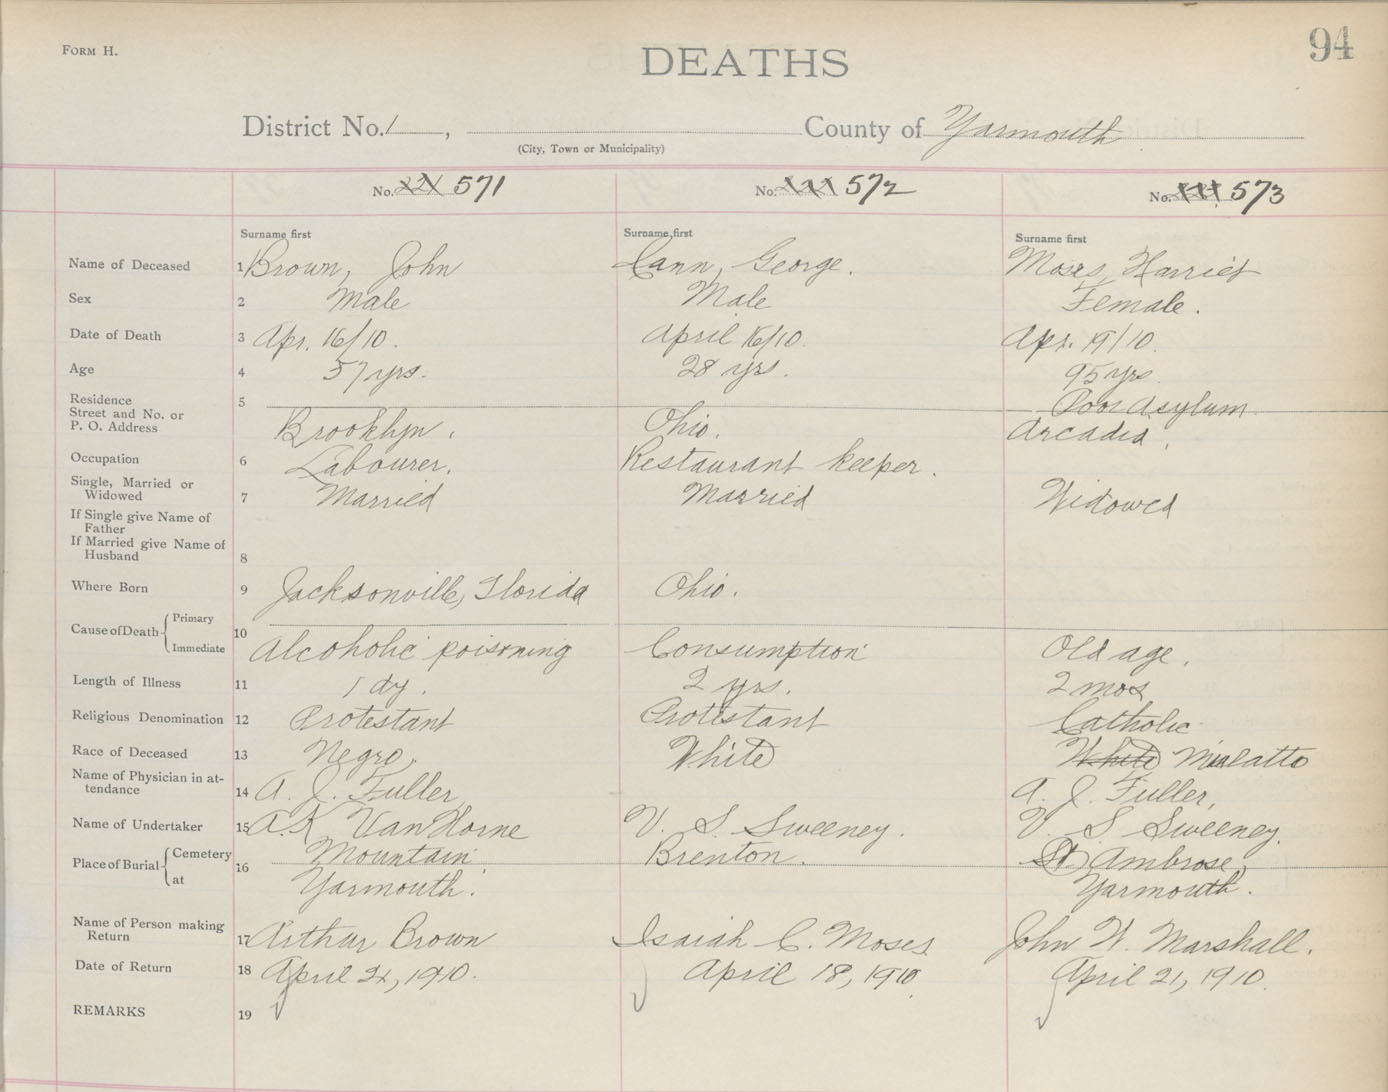 FORM H.
DEATHS
94
District No. 1 , County of Yarmouth
(City, Town or Municipality)
No. 571 No. 572 No. 573
Surname first Surname first Surname first
Name of Deceased 1 Brown, John Cann, George. Moses, Harriet
Sex 2 Male Male Female.
Date of Death 3 Apr. 16/10. April 16/10. Apr. 19/10.
Age 4 57 yrs. 28 yrs. 95 yrs
Residence 5 Poor Asylum
Street and No. or
P. O. Address Brooklyn. Ohio. Arcadia.
Occupation 6 Labourer. Restaurant keeper.
Single, Married or
Widowed 7 Married Married Widowed
If Single give Name of
Father
If Married give Name of
Husband 8
Where Born 9 Jacksonville, Florida Ohio.
Cause of Death Primary
10
Immediate Alcoholic poisoning Consumption Old age.
Length of Illness 11 1 dy. 2 yrs. 2 mos
Religious Denomination 12 Protestant Protestant Catholic
Race of Deceased 13 Negro. White White Mulatto
Name of Physician in at-
tendance 14 A. J. Fuller A. J. Fuller,
Name of Undertaker 15 A. K VanHorne V. S. Sweeney. V. S Sweeney.
Place of Burial Cemetery 16 Mountain Brenton. St. Ambrose,
at Yarmouth. Yarmouth.
Name of Person making
Return 17 Arthur Brown Isaiah C. Moses John W. Marshall.
Date of Return 18 April 21, 1910. April 18, 1910. April 21, 1910.
REMARKS 19